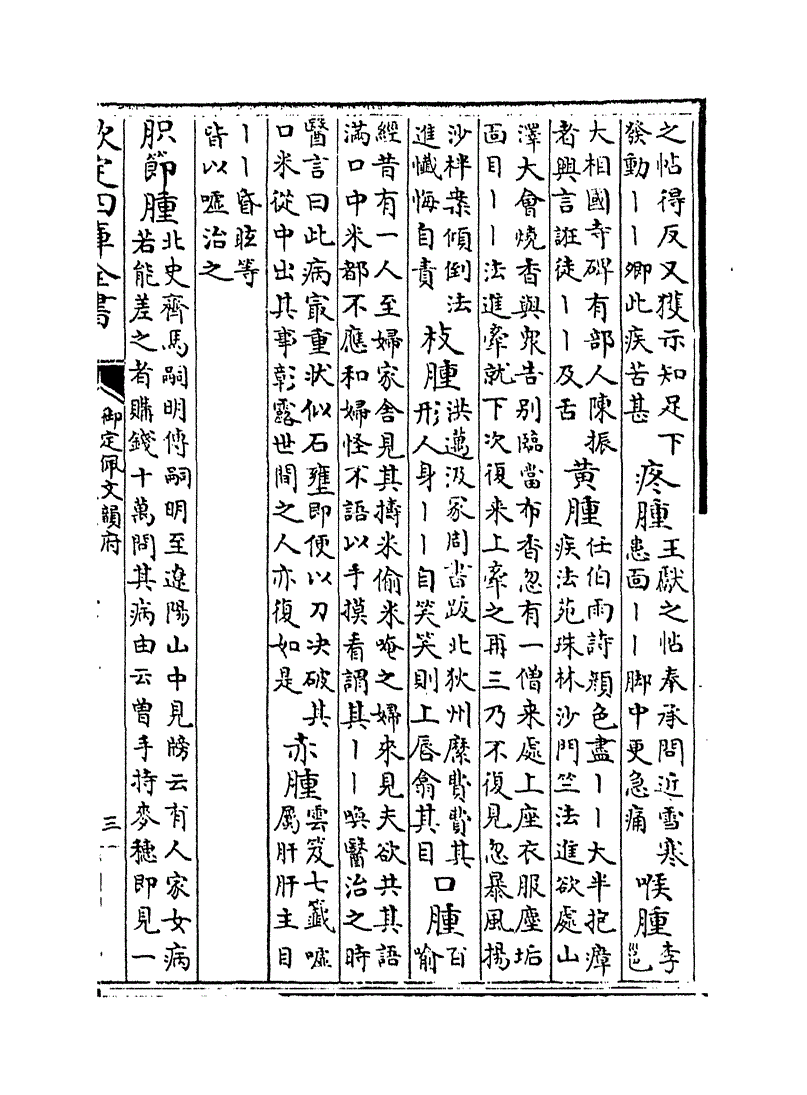 之帖得反又獲示知足下
發動丨丨卿此疾苦甚
疼腫
王獻之帖奉承問近雪寒
患面丨丨脚中更急痛
喉腫
李
邕
大相國寺碑有部人陳振
者興言誑徒丨丨及舌
黄腫
任伯雨詩顔色盡丨丨大半抱瘴
疾法苑珠林沙門竺法進欲處山
澤大會燒香與衆告别臨當布香忽有一僧来處上座衣服塵垢
面目丨丨法進牽就下次復来上牽之再三乃不復見忽暴風揚
沙柈案傾倒法
進懴悔自責
枝腫
洪邁汲冢周書跋北狄州縻費費其
形人身丨丨自笑笑則上唇翕其目
口腫
百
喻
經昔有一人至婦家舍見其擣米偷米唵之婦來見夫欲共其語
滿口中米都不應和婦怪不語以手摸看謂其丨丨喚醫治之時
醫言曰此病㝡重状似石壅即便以刀决破其
口米從中出其事彰露世間之人亦復如是
赤腫
雲笈七籤噓
屬肝肝主目
丨丨昏眩等
皆以噓治之
胑節腫
北史齊馬嗣明傳嗣明至遼陽山中見牓云有人家女病
若能差之者購錢十萬問其病由云曽手持麥穗即見一
欽定四庫全書
御定佩文韻府
三